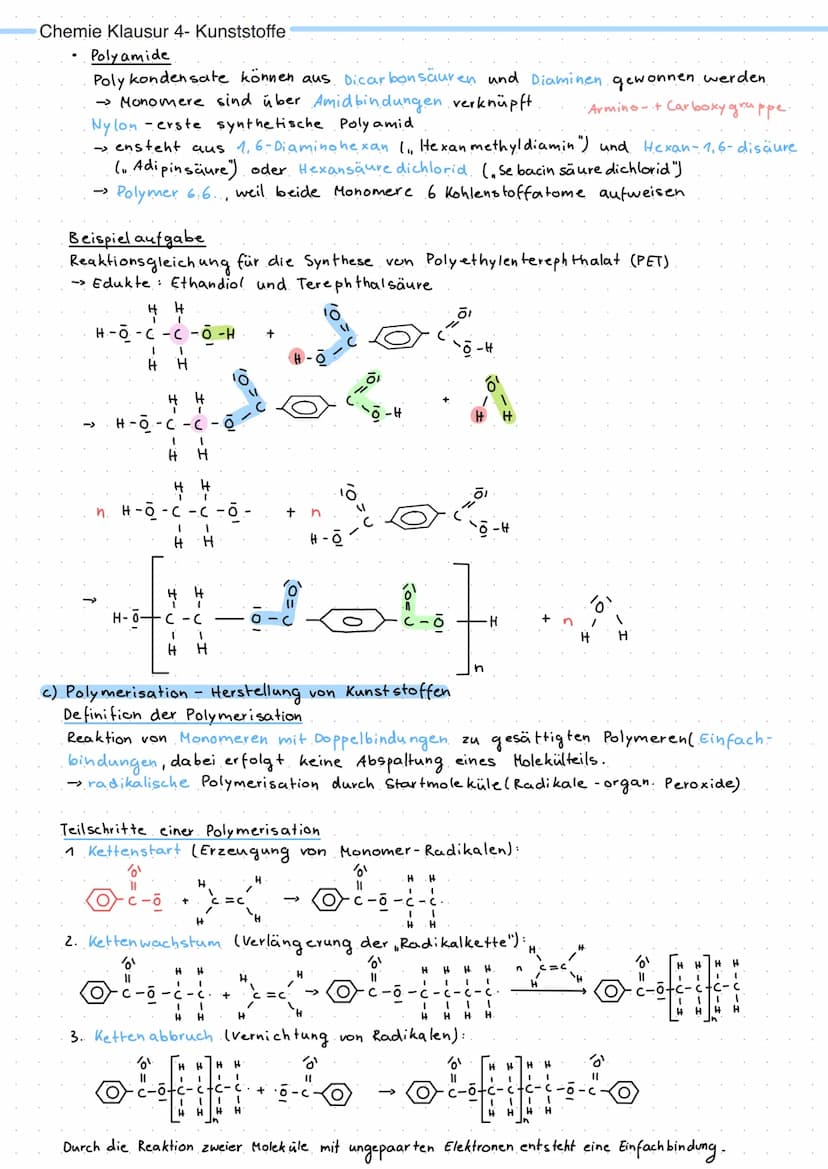 Chemie Klausur 4- Kunststoffe
• Polyamide
Polykondensate können aus Dicarbonsäuren und Diaminen gewonnen werden
→ Monomere sind über Amidbindungen verknüpft
Armino- + Carboxygruppe
Nylon - erste synthetische Polyamid
→ ensteht aus 1,6-Diaminohexan („Hexanmethyldiamin") und Hexan-1,6-disäure
(„Adipinsäure") oder Hexansäuredichlorid („Sebacinsäuredichlorid")
→ Polymer 6.6., weil beide Monomere 6 Kohlenstoffatome aufweisen
Beispielaufgabe
Reaktionsgleichung für die Synthese von Polyethylenterephthalat (PET)
→ Edukte: Ethandiol und Terephthalsäure
c) Polymerisation - Herstellung von Kunststoffen
Definition der Polymerisation
Reaktion von Monomeren mit Doppelbindungen zu gesättigten Polymeren (Einfach-
bindungen, dabei erfolgt keine Abspaltung eines Molekülteils.
→ radikalische Polymerisation durch Startmoleküle (Radikale - organ. Peroxide)
Teilschritte einer Polymerisation
1 Kettenstart (Erzeugung von Monomer-Radikalen):
2. Kettenwachstum (Verlängerung der „Radikalkette"):
3. Kettenabbruch (Vernichtung von Radikalen):
Durch die Reaktion zweier Moleküle mit ungepaarten Elektronen entsteht eine Einfachbindung.